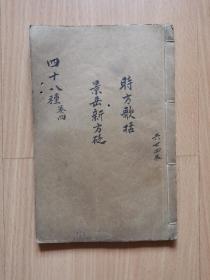 時方歌括
景岳新方砭
四十八種卷四